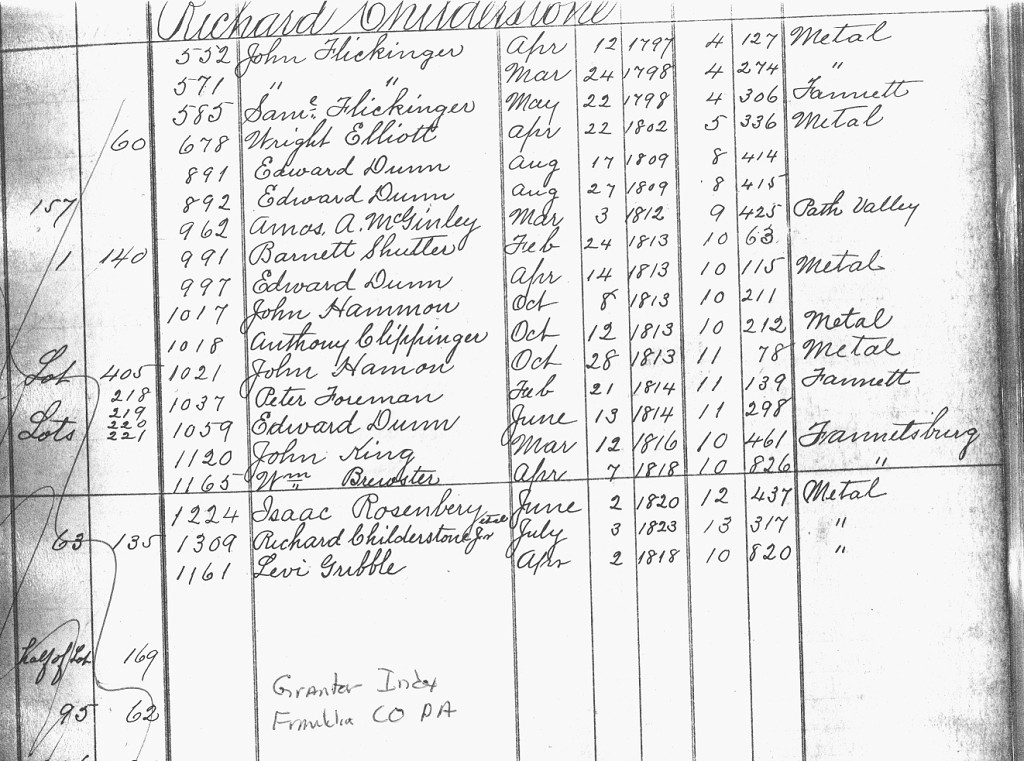 Richard Childerstone
552 John Flickinger Apr 12 1797 4 127 Metal
571 " " Mar 24 1798 4 274 "
585 Saml Flickinger May 22 1798 4 306 Fannett
60 678 Wright Elliott Apr 22 1802 5 336 Metal
891 Edward Dunn Aug 17 1809 8 414
157 892 Edward Dunn Aug 27 1809 8 415
962 Amos. A. McGinley Mar 3 1812 9 425 Path Valley
1 140 991 Barnett Shutler Feb 24 1813 10 63
997 Edward Dunn Apr 14 1813 10 115 Metal
1017 John Hammon Oct 8 1813 10 211
1018 Anthony Clippinger Oct 12 1813 10 212 Metal
Lot 405 1021 John Hamon Oct 28 1813 11 78 Metal
218
1037 Peter Foreman Feb 21 1814 11 139 Fannett
219
Lots 220
221 1059 Edward Dunn June 13 1814 11 298
1120 John King Mar 12 1816 10 461 Fannetsburg
1165 Wm Brewster Apr 7 1818 10 826 "
1224 Isaac Rosenbery June 2 1820 12 437 Metal
63 135 1309 Richard Childerstone Jr July 3 1823 13 317 "
1161 Levi Gribble Apr 2 1818 10 820 "
half of Lot 169
Grantor Index
95 62 Franklin CO PA